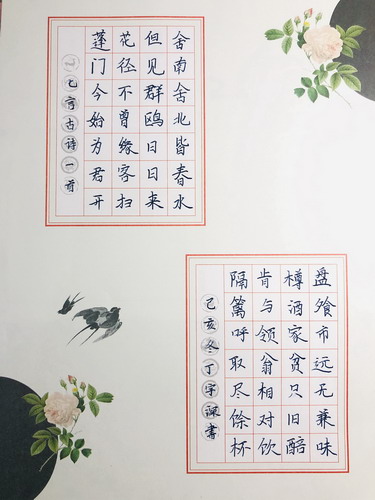 舍南舍北皆春水
但见群鸥日日来
花径不曾缘客扫
蓬门今始为君开
己亥古诗一首
盘飧市远无兼味
樽酒家贫只旧醅
肯与领翁相对饮
隔篱呼取尽馀杯
己亥冬丁宇書